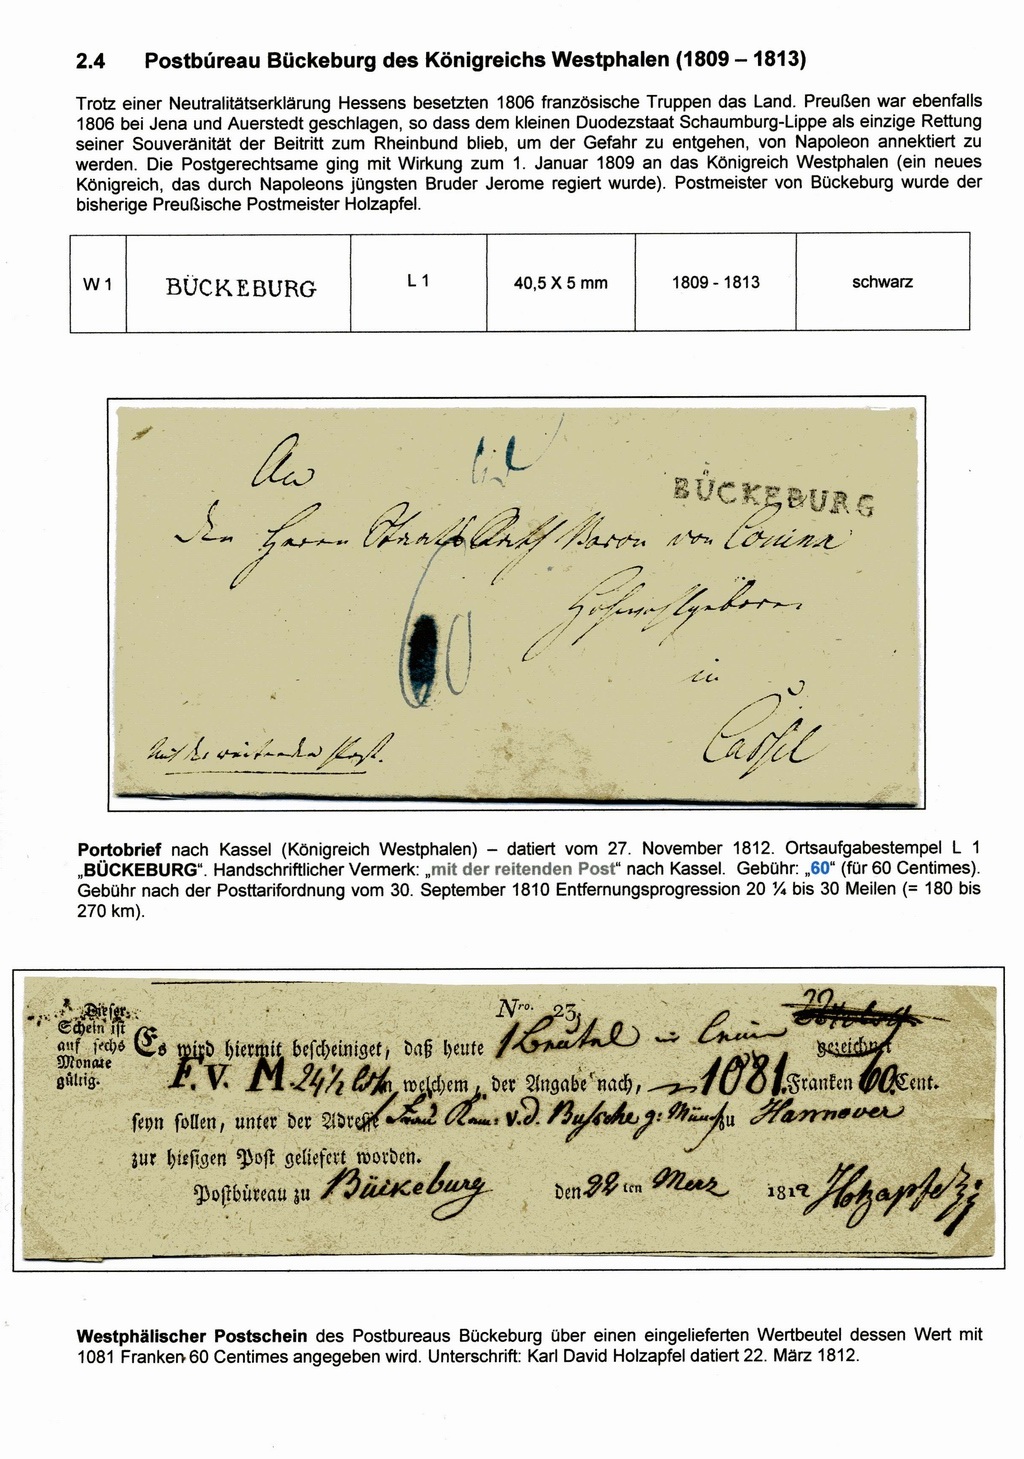 2.4 Postbúreau Bückeburg des Königreichs Westphalen (1809 – 1813)
Trotz einer Neutralitätserklärung Hessens besetzten 1806 französische Truppen das Land. Preußen war ebenfalls
1806 bei Jena und Auerstedt geschlagen, so dass dem kleinen Duodezstaat Schaumburg-Lippe als einzige Rettung
seiner Souveränität der Beitritt zum Rheinbund blieb, um der Gefahr zu entgehen, von Napoleon annektiert zu
werden. Die Postgerechtsame ging mit Wirkung zum 1. Januar 1809 an das Königreich Westphalen (ein neues
Königreich, das durch Napoleons jüngsten Bruder Jerome regiert wurde). Postmeister von Bückeburg wurde der
bisherige Preußische Postmeister Holzapfel.
W 1 BÜCKEBURG L 1 40,5 X 5 mm 1809 - 1813 schwarz
An
BÜCKEBURG
Den Herrn Staats Rath Baron von Coninx
Hochwohlgeboren
60
in
Cassel
Mit der reitenden Post.
Portobrief nach Kassel (Königreich Westphalen) – datiert vom 27. November 1812. Ortsaufgabestempel L 1
„BÜCKEBURG“. Handschriftlicher Vermerk: „mit der reitenden Post“ nach Kassel. Gebühr: „60“ (für 60 Centimes).
Gebühr nach der Posttarifordnung vom 30. September 1810 Entfernungsprogression 20 ¼ bis 30 Meilen (= 180 bis
270 km).
Dieser
Schein ist
auf sechs
Monate
gültig.
Nro. 23.
Es wird hiermit bescheiniget, daß heute 1 Beutel in Leinen gezeichnet
F. V. M. 24½ welchem, der Angabe nach, 1081 Franken 60 Cent.
seyn sollen, unter der Adresse Frau v. d. Bussche zu Hannover
zur hiesigen Post geliefert worden.
Postbüreau zu Bückeburg den 22ten Merz 1812 Holzapfel
Westphälischer Postschein des Postbureaus Bückeburg über einen eingelieferten Wertbeutel dessen Wert mit
1081 Franken 60 Centimes angegeben wird. Unterschrift: Karl David Holzapfel datiert 22. März 1812.